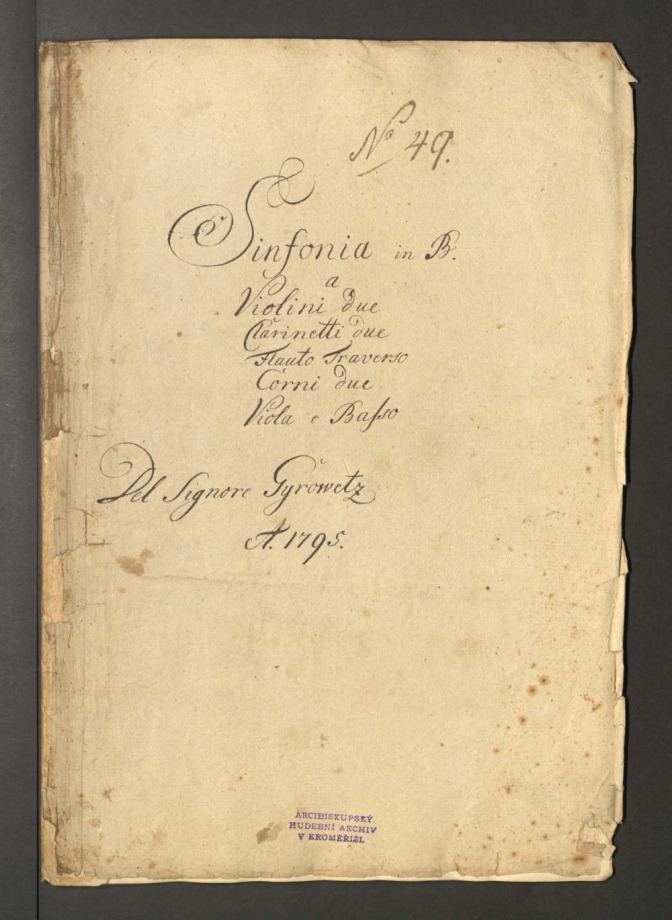 No 49.
Sinfonia in B.
a
Violini due
Clarinetti due
Flauto Traverso
Corni due
Viola e Baſso
Del Signore Gyrowetz
A. 1795.
ARCIBISKUPSKÝ
HUDEBNÍ ARCHIV
V KROMĚŘÍŽI.